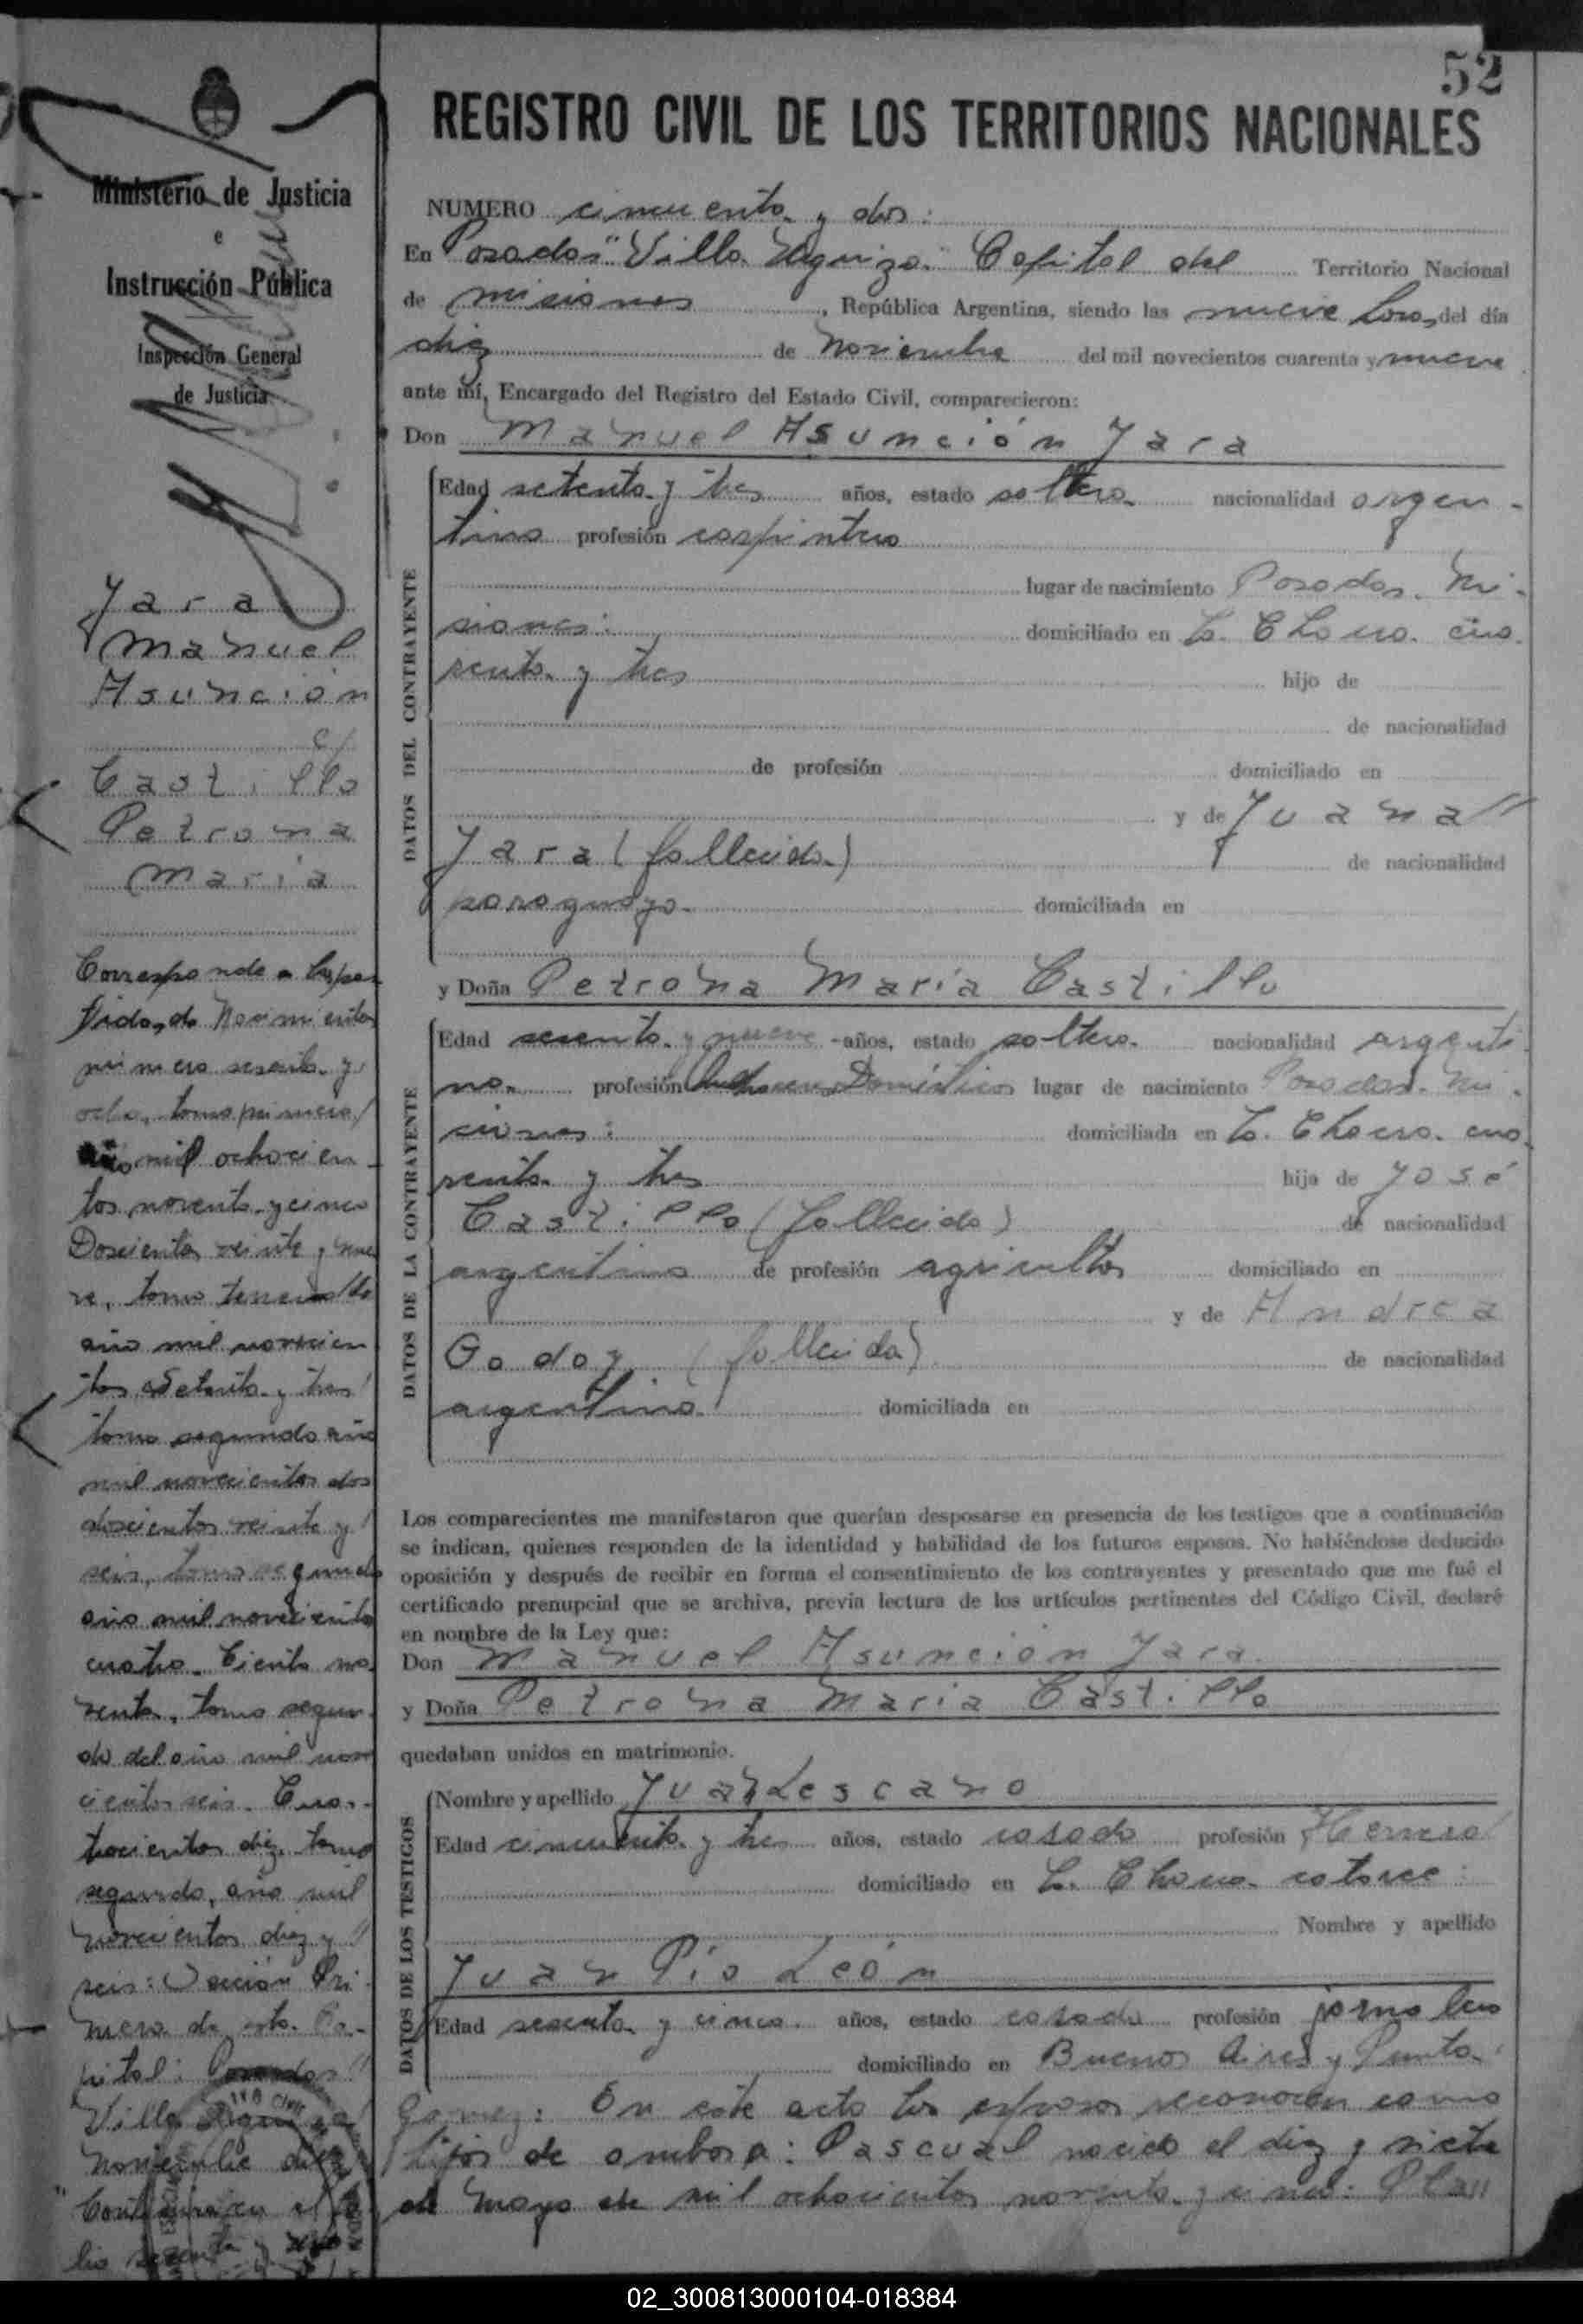 52
REGISTRO CIVIL DE LOS TERRITORIOS NACIONALES
Ministerio de Justicia
e
Instrucción Pública
Inspección General
de Justicia
Jara
Manuel
Asunción
c/
Castillo
Petrona
María
Corresponde a las par
tidas de Nacimientos
número sesenta y
ocho, tomo primero
año mil ochocien-
tos noventa y cinco
Doscientos veinte y nue
ve, tomo tercero
año mil novecien
tos setenta y tres
tomo segundo año
mil novecientos dos
doscientos veinte y
seis, tomo segundo
año mil novecientos
cuatro. Ciento no-
venta, tomo segun-
do del año mil nove
cientos seis. Cua-
trocientos diez tomo
segundo, año mil
novecientos diez y
seis: Sección Pri-
mera de esta Ca-
pital: Posadas
Villa Urquiza
Noviembre diez
NUMERO cincuenta y dos:
En Posadas "Villa Urquiza" Capital del Territorio Nacional
de Misiones, República Argentina, siendo las nueve horas del día
diez de Noviembre del mil novecientos cuarenta y nueve
ante mí, Encargado del Registro del Estado Civil, comparecieron:
Don Manuel Asunción Jara
DATOS DEL CONTRAYENTE
Edad setenta y tres años, estado soltero nacionalidad argen-
tino profesión carpintero
lugar de nacimiento Posadas. Mi-
siones: domiciliado en La Chaura cua-
renta y tres hijo de
de nacionalidad
de profesión domiciliado en
y de Juana
Jara (fallecida) de nacionalidad
paraguaya domiciliada en
y Doña Petrona María Castillo
DATOS DE LA CONTRAYENTE
Edad sesenta y nueve años, estado soltera nacionalidad argenti-
na profesión Quehaceres Domésticos lugar de nacimiento Posadas. Mi-
siones: domiciliada en La Chaura cua-
renta y tres hija de José
Castillo (fallecido) de nacionalidad
argentino de profesión agricultor domiciliado en
y de Andrea
Godoy (fallecida) de nacionalidad
argentina domiciliada en
Los comparecientes me manifestaron que querían desposarse en presencia de los testigos que a continuación
se indican, quienes responden de la identidad y habilidad de los futuros esposos. No habiéndose deducido
oposición y después de recibir en forma el consentimiento de los contrayentes y presentado que me fué el
certificado prenupcial que se archiva, previa lectura de los artículos pertinentes del Código Civil, declaré
en nombre de la Ley que:
Don Manuel Asunción Jara
y Doña Petrona María Castillo
quedaban unidos en matrimonio.
DATOS DE LOS TESTIGOS
Nombre y apellido Juan Lescano
Edad cincuenta y tres años, estado casado profesión Herrero
domiciliado en La Chaura catorce:
Nombre y apellido
Juan Pío León
Edad sesenta y cinco años, estado casado profesión jornalero
domiciliado en Buenos Aires y Punto
Gomez: En este acto los esposos reconocen como
hijos de ambos a: Pascual nacido el diez y siete
de Mayo de mil ochocientos noventa y cinco:
02_300813000104-018384